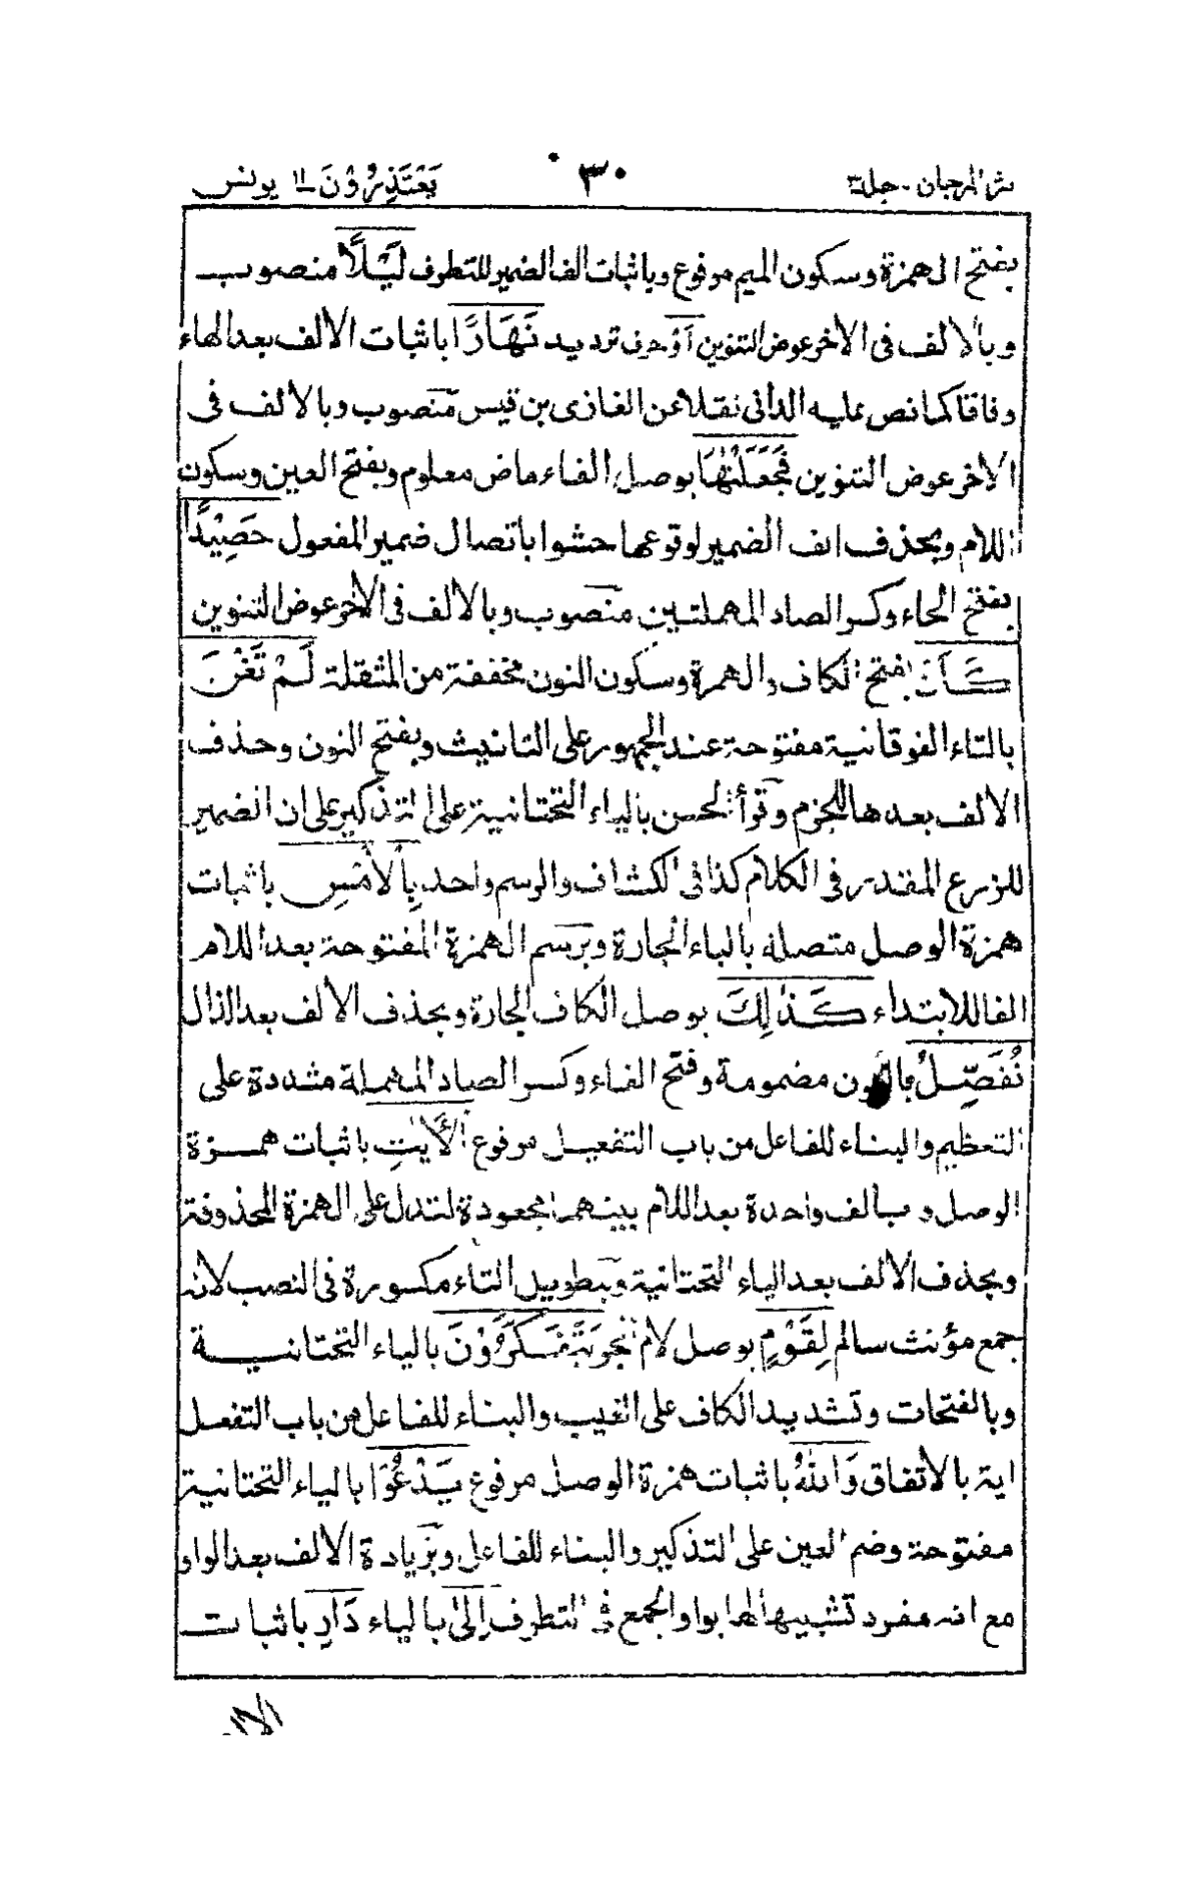 نثر المرجان - جلد ٣
٣٠
يَعْتَذِرُوْنَ ١١ يونس
بفتح الهمزة وسكون الميم مرفوع وباثبات الف الضمير للتطرف لَيْلًا منصوب
وبالالف فى الاخر عوض التنوين اَوْ حرف ترديد نَهَارًا باثبات الالف بعد الهاء
وفاقا كما نص عليه الدانى نقلا عن الغازى بن قيس منصوب وبالالف فى
الاخر عوض التنوين فَجَعَلْنٰهَا بوصل الفاء ماض معلوم وبفتح العين وسكون
اللام وبحذف الف الضمير لوقوعها حشوا باتصال ضمير المفعول حَصِيْدًا
بفتح الحاء وكسر الصاد المهملتين منصوب وبالالف فى الاخر عوض التنوين
كَاَنْ بفتح الكاف والهمزة وسكون النون مخففة من المثقلة لَمْ تَغْنَ
بالتاء الفوقانية مفتوحة عند الجمهور على التانيث وبفتح النون وحذف
الالف بعدها للجزم وقرأ الحسن بالياء التحتانية على التذكير على ان الضمير
للزرع المقدر فى الكلام كذا فى الكشاف والرسم واحد بِالْاَمْسِ باثبات
همزة الوصل متصلة بالباء الجارة وبرسم الهمزة المفتوحة بعد اللام
الفا للابتداء كَذٰلِكَ بوصل الكاف الجارة وبحذف الالف بعد الذال
نُفَصِّلُ بالنون مضمومة وفتح الفاء وكسر الصاد المهملة مشددة على
التعظيم والبناء للفاعل من باب التفعيل مرفوع الْاٰيٰتِ باثبات همزة
الوصل وبالف واحدة بعد اللام بينهما مجعودة لتدل على الهمزة المحذوفة
وبحذف الالف بعد الياء التحتانية وبتطويل التاء مكسورة فى النصب لانه
جمع مؤنث سالم لِقَوْمٍ بوصل لام الجر يَّتَفَكَّرُوْنَ بالياء التحتانية
وبالفتحات وتشديد الكاف على الغيب والبناء للفاعل من باب التفعل
اية بالاتفاق وَاللّٰهُ باثبات همزة الوصل مرفوع يَدْعُوْا بالياء التحتانية
مفتوحة وضم العين على التذكير والبناء للفاعل وبزيادة الالف بعد الواو
مع انه مفرد تشبيها لها بواو الجمع فى التطرف اِلٰى بالياء دَارِ باثبات
الالف